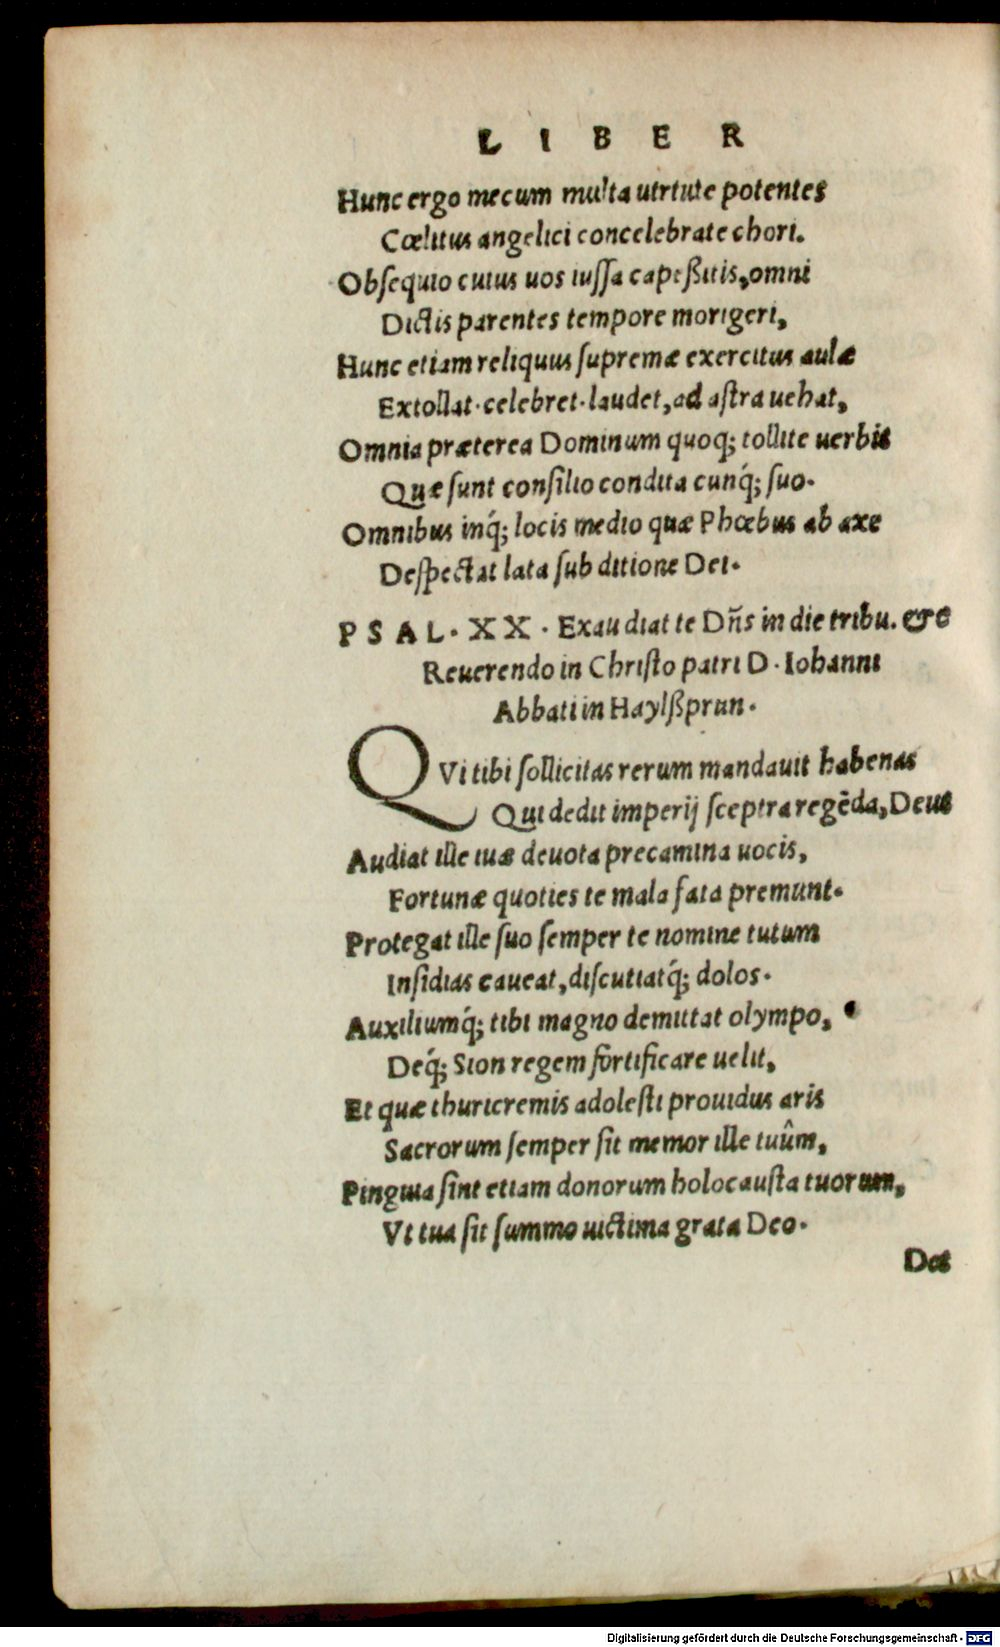 LIBER
Hunc ergo mecum multa uirtute potentes
Cœlitus angelici concelebrate chori.
Obsequio cuius uos iussa capeßitis, omni
Dictis parentes tempore morigeri,
Hunc etiam reliquus supremæ exercitus aulæ
Extollat. celebret. laudet, ad astra uehat,
Omnia præterea Dominum quoq; tollite uerbis
Quæ sunt consilio condita cunq́; suo.
Omnibus inq́; locis medio quæ Phœbus ab axe
Despectat lata sub ditione Dei.
PSAL. XX. Exaudiat te Dn̄s in die tribu. &c
Reuerendo in Christo patri D. Iohanni
Abbati in Haylßprun.
QVi tibi sollicitas rerum mandauit habenas
Qui dedit imperij sceptra regēda, Deus
Audiat ille tuæ deuota precamina uocis,
Fortunæ quoties te mala fata premunt.
Protegat ille suo semper te nomine tutum
Insidias caueat, discutiatq́; dolos.
Auxiliumq́; tibi magno demittat olympo,
Deq́; Sion regem fortificare uelit,
Et quæ thuricremis adolesti prouidus aris
Sacrorum semper sit memor ille tuûm,
Pinguia sint etiam donorum holocausta tuorum,
Vt tua sit summo uictima grata Deo.
Det
Digitalisierung gefördert durch die Deutsche Forschungsgemeinschaft - DFG